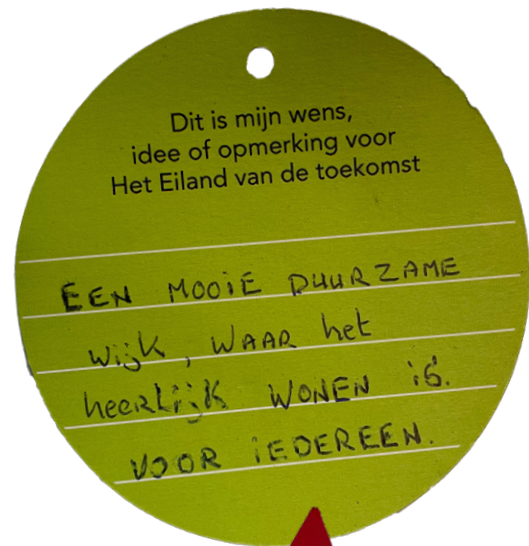 Dit is mijn wens,
idee of opmerking voor
Het Eiland van de toekomst
EEN MOOiE DUURZAME
wijk, WAAR het
heerLijK WONEN is.
VOOR iEDEREEN.